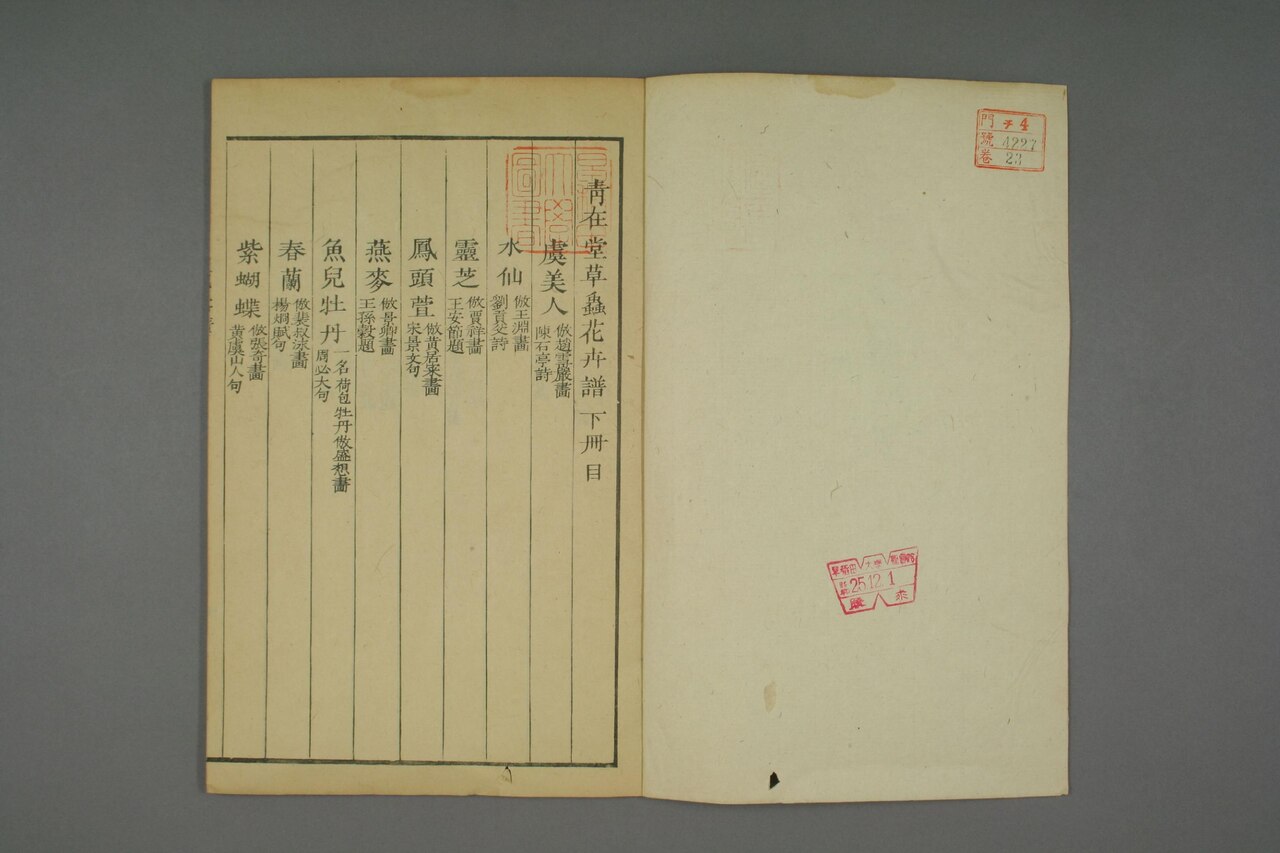 門 チ 4
號 4227
卷 23
早稻田大學圖書館
25.12.1
購求
靑在堂草蟲花卉譜下冊目
虞美人 倣趙雪巖畵 陳石亭詩
水仙 倣王淵畵 劉貢父詩
靈芝 倣賈祥畵 王安節題
鳳頭萱 倣黃居寀畵 宋景文句
燕麥 倣景卿畵 王孫穀題
魚兒牡丹 一名荷包牡丹倣盛想畵 周必大句
春蘭 倣裴叔泳畵 楊炯賦句
紫蝴蝶 倣張奇畵 黃虞山人句